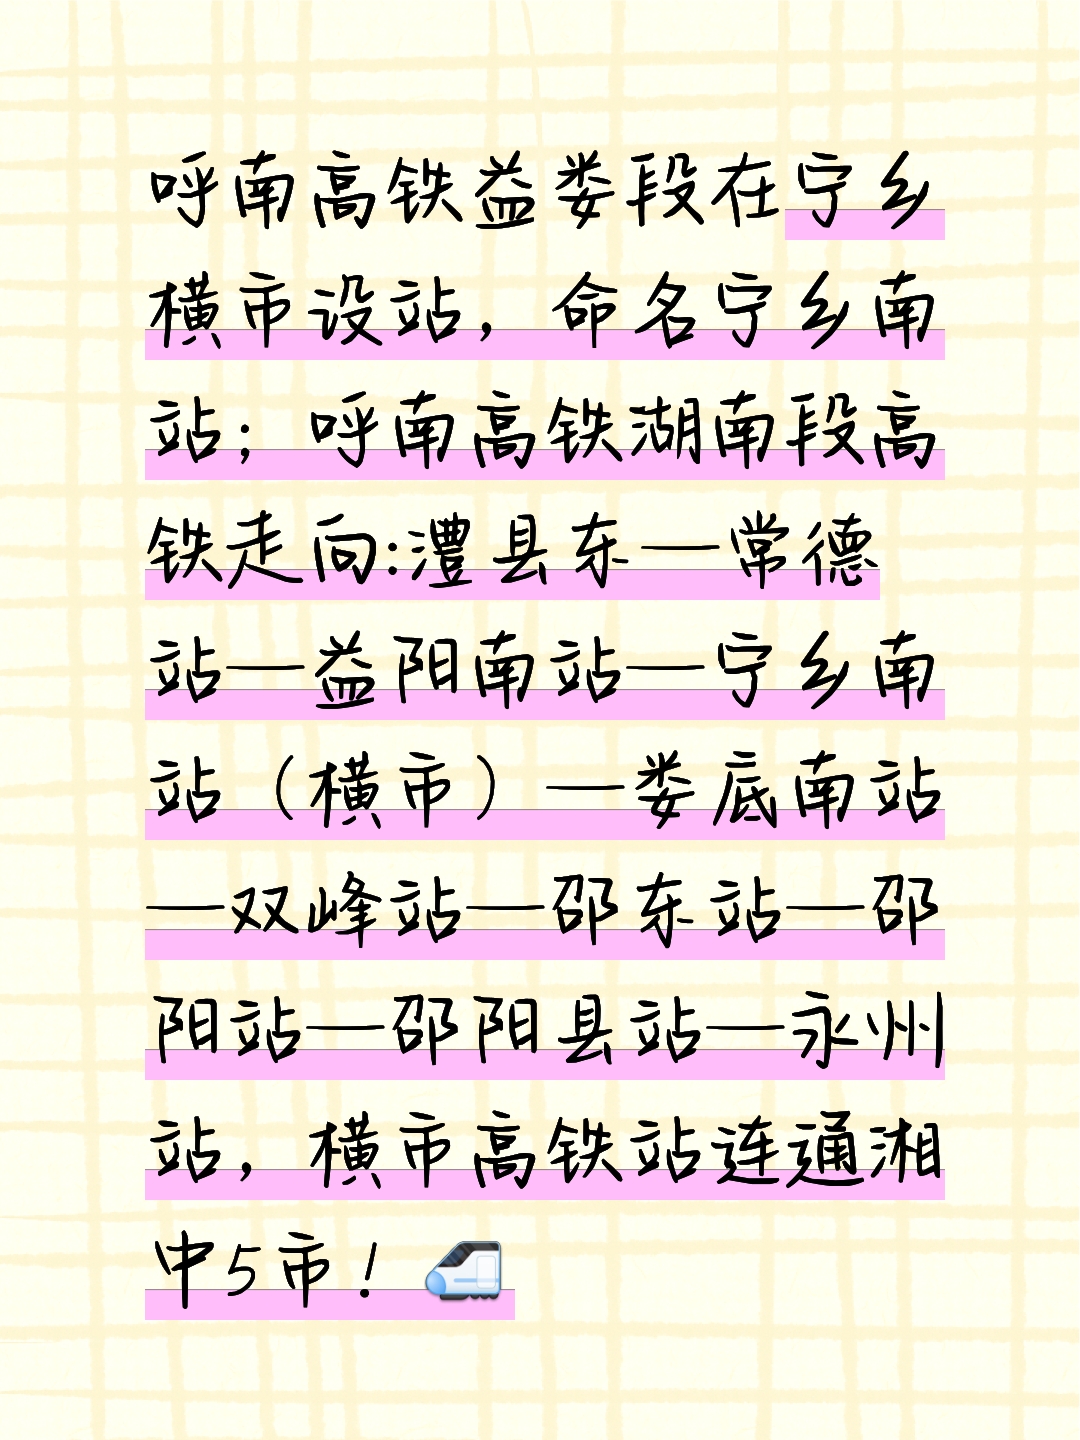 呼南高铁益娄段在宁乡
横市设站，命名宁乡南
站；呼南高铁湖南段高
铁走向:澧县东—常德
站—益阳南站—宁乡南
站（横市）—娄底南站
—双峰站—邵东站—邵
阳站—邵阳县站—永州
站，横市高铁站连通湘
中5市！🚅